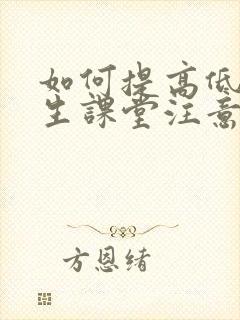 如何提高低
生課堂注意
方恩緒